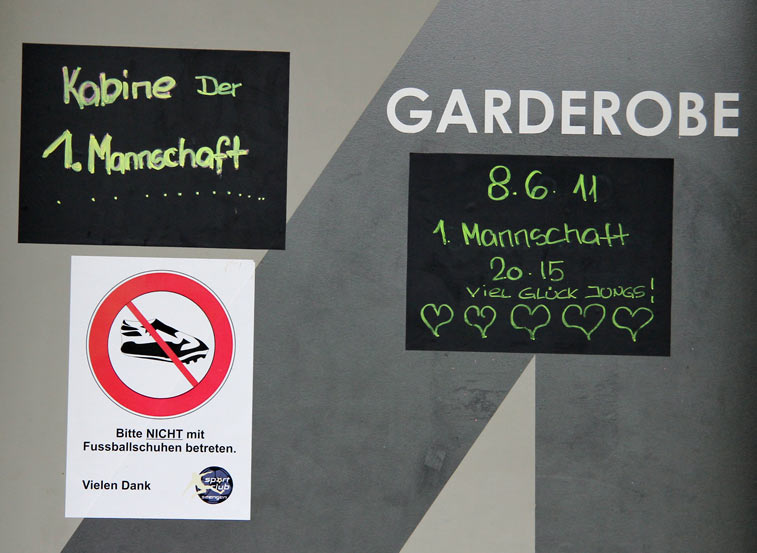 Kabine Der
1. Mannschaft
..............
GARDEROBE
8.6.11
1. Mannschaft
20.15
VIEL GLÜCK JUNGS!
Bitte NICHT mit
Fussballschuhen betreten.
Vielen Dank
sport
club
seengen